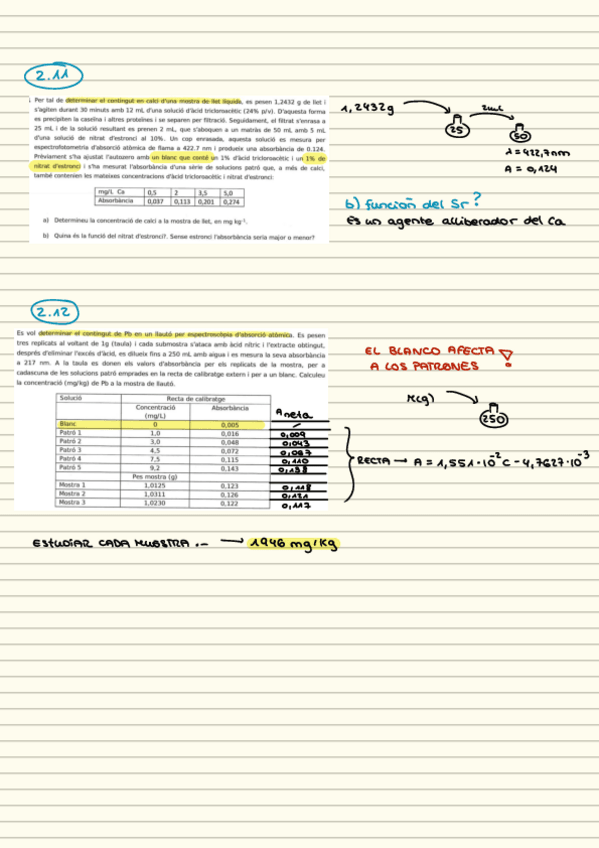 2.11
Per tal de determinar el contingut en calci d'una mostra de llet líquida, es pesen 1,2432 g de llet i
s'agiten durant 30 minuts amb 12 mL d'una solució d'àcid tricloroacètic (24% p/v). D'aquesta forma
es precipiten la caseïna i altres proteïnes i se separen per filtració. Seguidament, el filtrat s'enrasa a
25 mL i de la solució resultant es prenen 2 mL, que s'aboquen a un matràs de 50 mL amb 5 mL
d'una solució de nitrat d'estronci al 10%. Un cop enrasada, aquesta solució es mesura per
espectrofotometria d'absorció atòmica de flama a 422.7 nm i produeix una absorbància de 0.124.
Prèviament s'ha ajustat l'autozero amb un blanc que conté un 1% d'àcid tricloroacètic i un 1% de
nitrat d'estronci i s'ha mesurat l'absorbància d'una sèrie de solucions patró que, a més de calci,
també contenien les mateixes concentracions d'àcid tricloroacètic i nitrat d'estronci:
mg/L Ca 0,5 2 3,5 5,0
Absorbància 0,037 0,113 0,201 0,274
a) Determineu la concentració de calci a la mostra de llet, en mg kg-1.
b) Quina és la funció del nitrat d'estronci?. Sense estronci l'absorbància seria major o menor?
1,2432g
2mL
25
50
λ=422,7nm
A = 0,124
b) función del Sr?
Es un agente alliberador del Ca
2.12
Es vol determinar el contingut de Pb en un llautó per espectroscòpia d'absorció atòmica. Es pesen
tres replicats al voltant de 1g (taula) i cada submostra s'ataca amb àcid nítric i l'extracte obtingut,
després d'eliminar l'excés d'àcid, es dilueix fins a 250 mL amb aigua i es mesura la seva absorbància
a 217 nm. A la taula es donen els valors d'absorbància per els replicats de la mostra, per a
cadascuna de les solucions patró emprades en la recta de calibratge extern i per a un blanc. Calculeu
la concentració (mg/kg) de Pb a la mostra de llautó.
Solució Recta de calibratge
Concentració (mg/L) Absorbància A neta
Blanc 0 0,005 -
Patró 1 1,0 0,016 0,009
Patró 2 3,0 0,048 0,043
Patró 3 4,5 0,072 0,067
Patró 4 7,5 0,115 0,110
Patró 5 9,2 0,143 0,138
Pes mostra (g)
Mostra 1 1,0125 0,123 0,118
Mostra 2 1,0311 0,126 0,121
Mostra 3 1,0230 0,122 0,117
EL BLANCO AFECTA
A LOS PATRONES !
M(g)
250
RECTA → A = 1,551·10⁻²C - 4,7627·10⁻³
ESTUDIAR CADA MUESTRA .- → 1946 mg/Kg